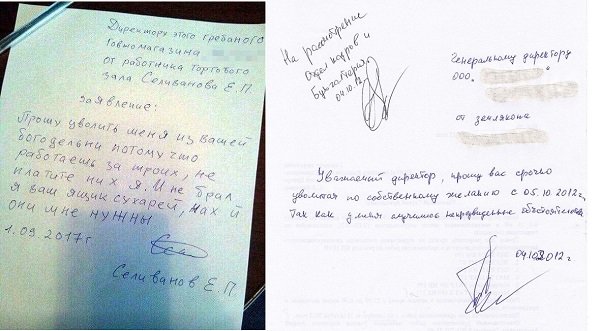 Директору этого гребаного
Говномагазина
от работника Торгового
зала Селиванова Е.П.
заявление:
Прошу уволить меня из вашей
богодельни потому что
работаешь за троих, не
платите них я. И не брал
я ваш ящик сухарей, нах й
они мне нужны
1.09.2017г.
Селиванов Е.П.
На рассмотрение
Отдел кадров и
бухгалтерия
04.10.12
Генеральному директору
ООО "
"
от землякопа
Уважаемый директор, прошу вас срочно
уволится по собственному желанию с 05.10.2012г.
Так как у меня случилось непредвиденные обстоятельства.
04.10.2012г